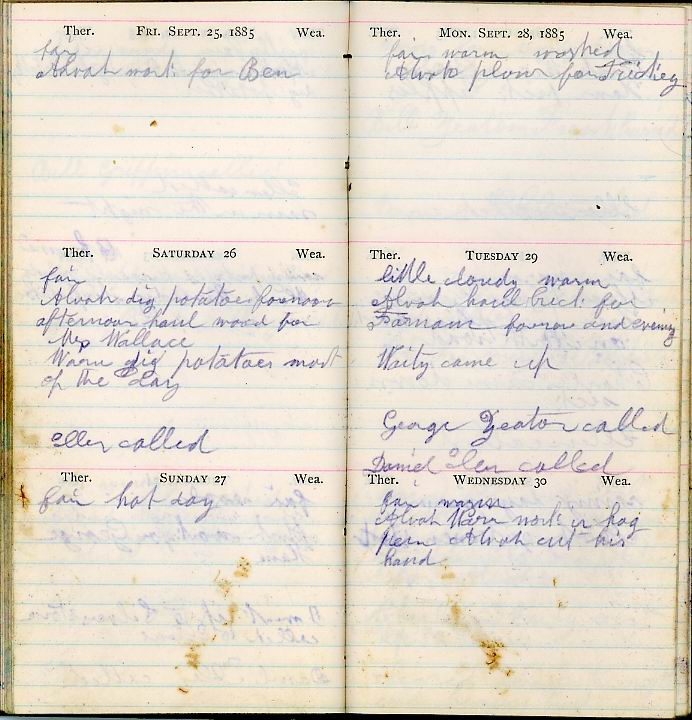 Ther. FRI. SEPT. 25, 1885 Wea.
fair
Alvah work for Ben
Ther. SATURDAY 26 Wea.
fair
Alvah dig potatoes forenoon
afternoon haul wood for
Mrs Wallace
Warn dig potatoes most
of the day
Ellen called
Ther. SUNDAY 27 Wea.
fair hot day
Ther. MON. SEPT. 28, 1885 Wea.
fair warm washed
Alvah plow for
Ther. TUESDAY 29 Wea.
little cloudy warm
Alvah haul brick for
Farnam forenoon and evening
Waity came up
George Yeaton called
Daniel Ellen called
Ther. WEDNESDAY 30 Wea.
fair warm
Alvah Warn work in hog
pern Alvah cut his
hand